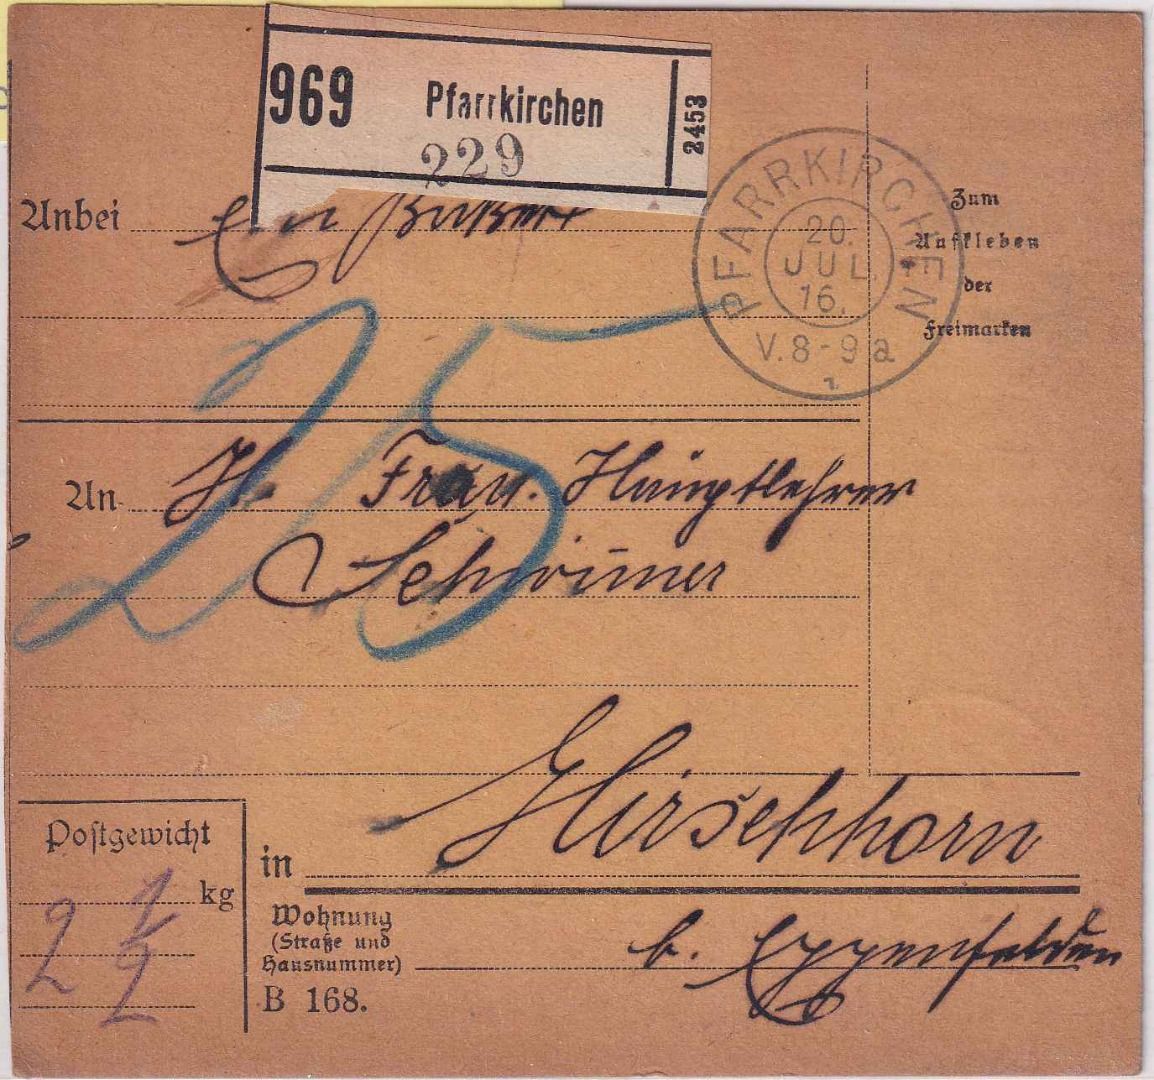 969 Pfarrkirchen 2453
229
PFARRKIRCHEN
20.
JUL.
16.
V. 8-9 a
Zum
Aufkleben
der
Freimarken
Anbei Ein
25
An H. Frau. Hauptlehrer
Schwimer
Postgewicht
kg
2 1/2
in Hirschhorn
Wohnung
(Straße und
Hausnummer)
b. Eggenfelden
B 168.